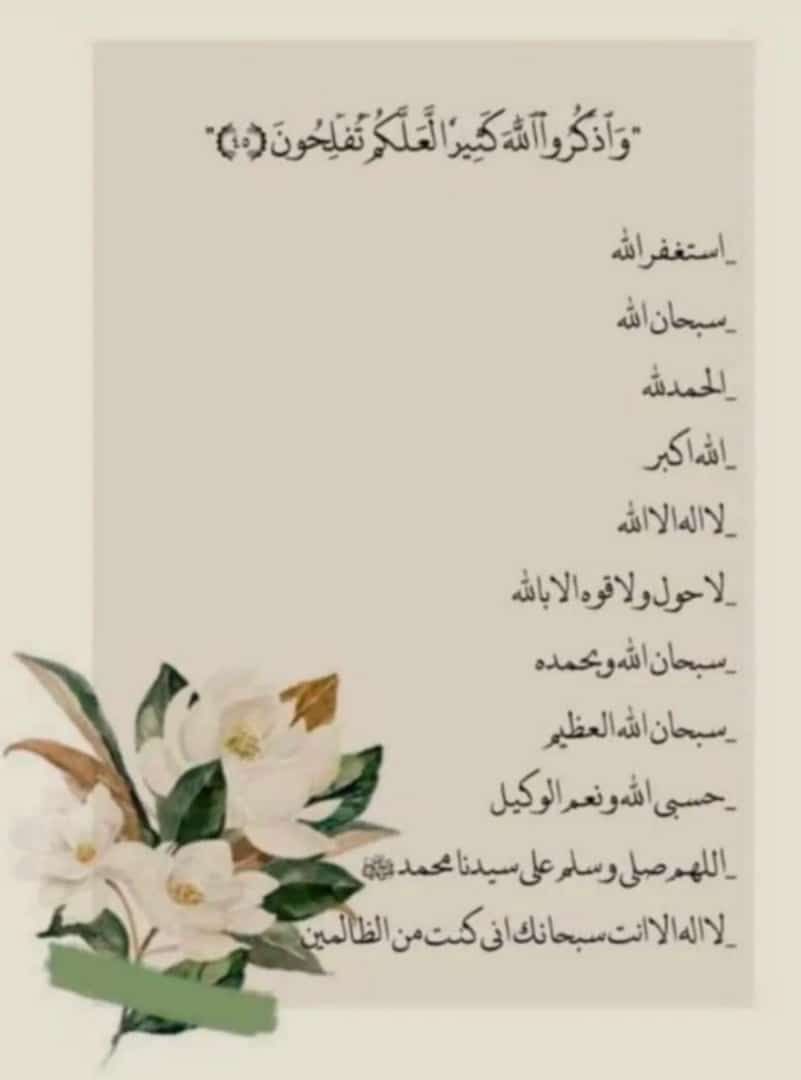 "وَٱذْكُرُوا۟ ٱللَّهَ كَثِيرًا لَّعَلَّكُمْ تُفْلِحُونَ ﴿٤٥﴾"
_استغفر الله
_سبحان الله
_الحمدلله
_الله اكبر
_لا اله الا الله
_لا حول ولا قوه الا بالله
_سبحان الله وبحمده
_سبحان الله العظيم
_حسبي الله ونعم الوكيل
_اللهم صلي وسلم على سيدنا محمد ﷺ
_لا اله الا انت سبحانك اني كنت من الظالمين